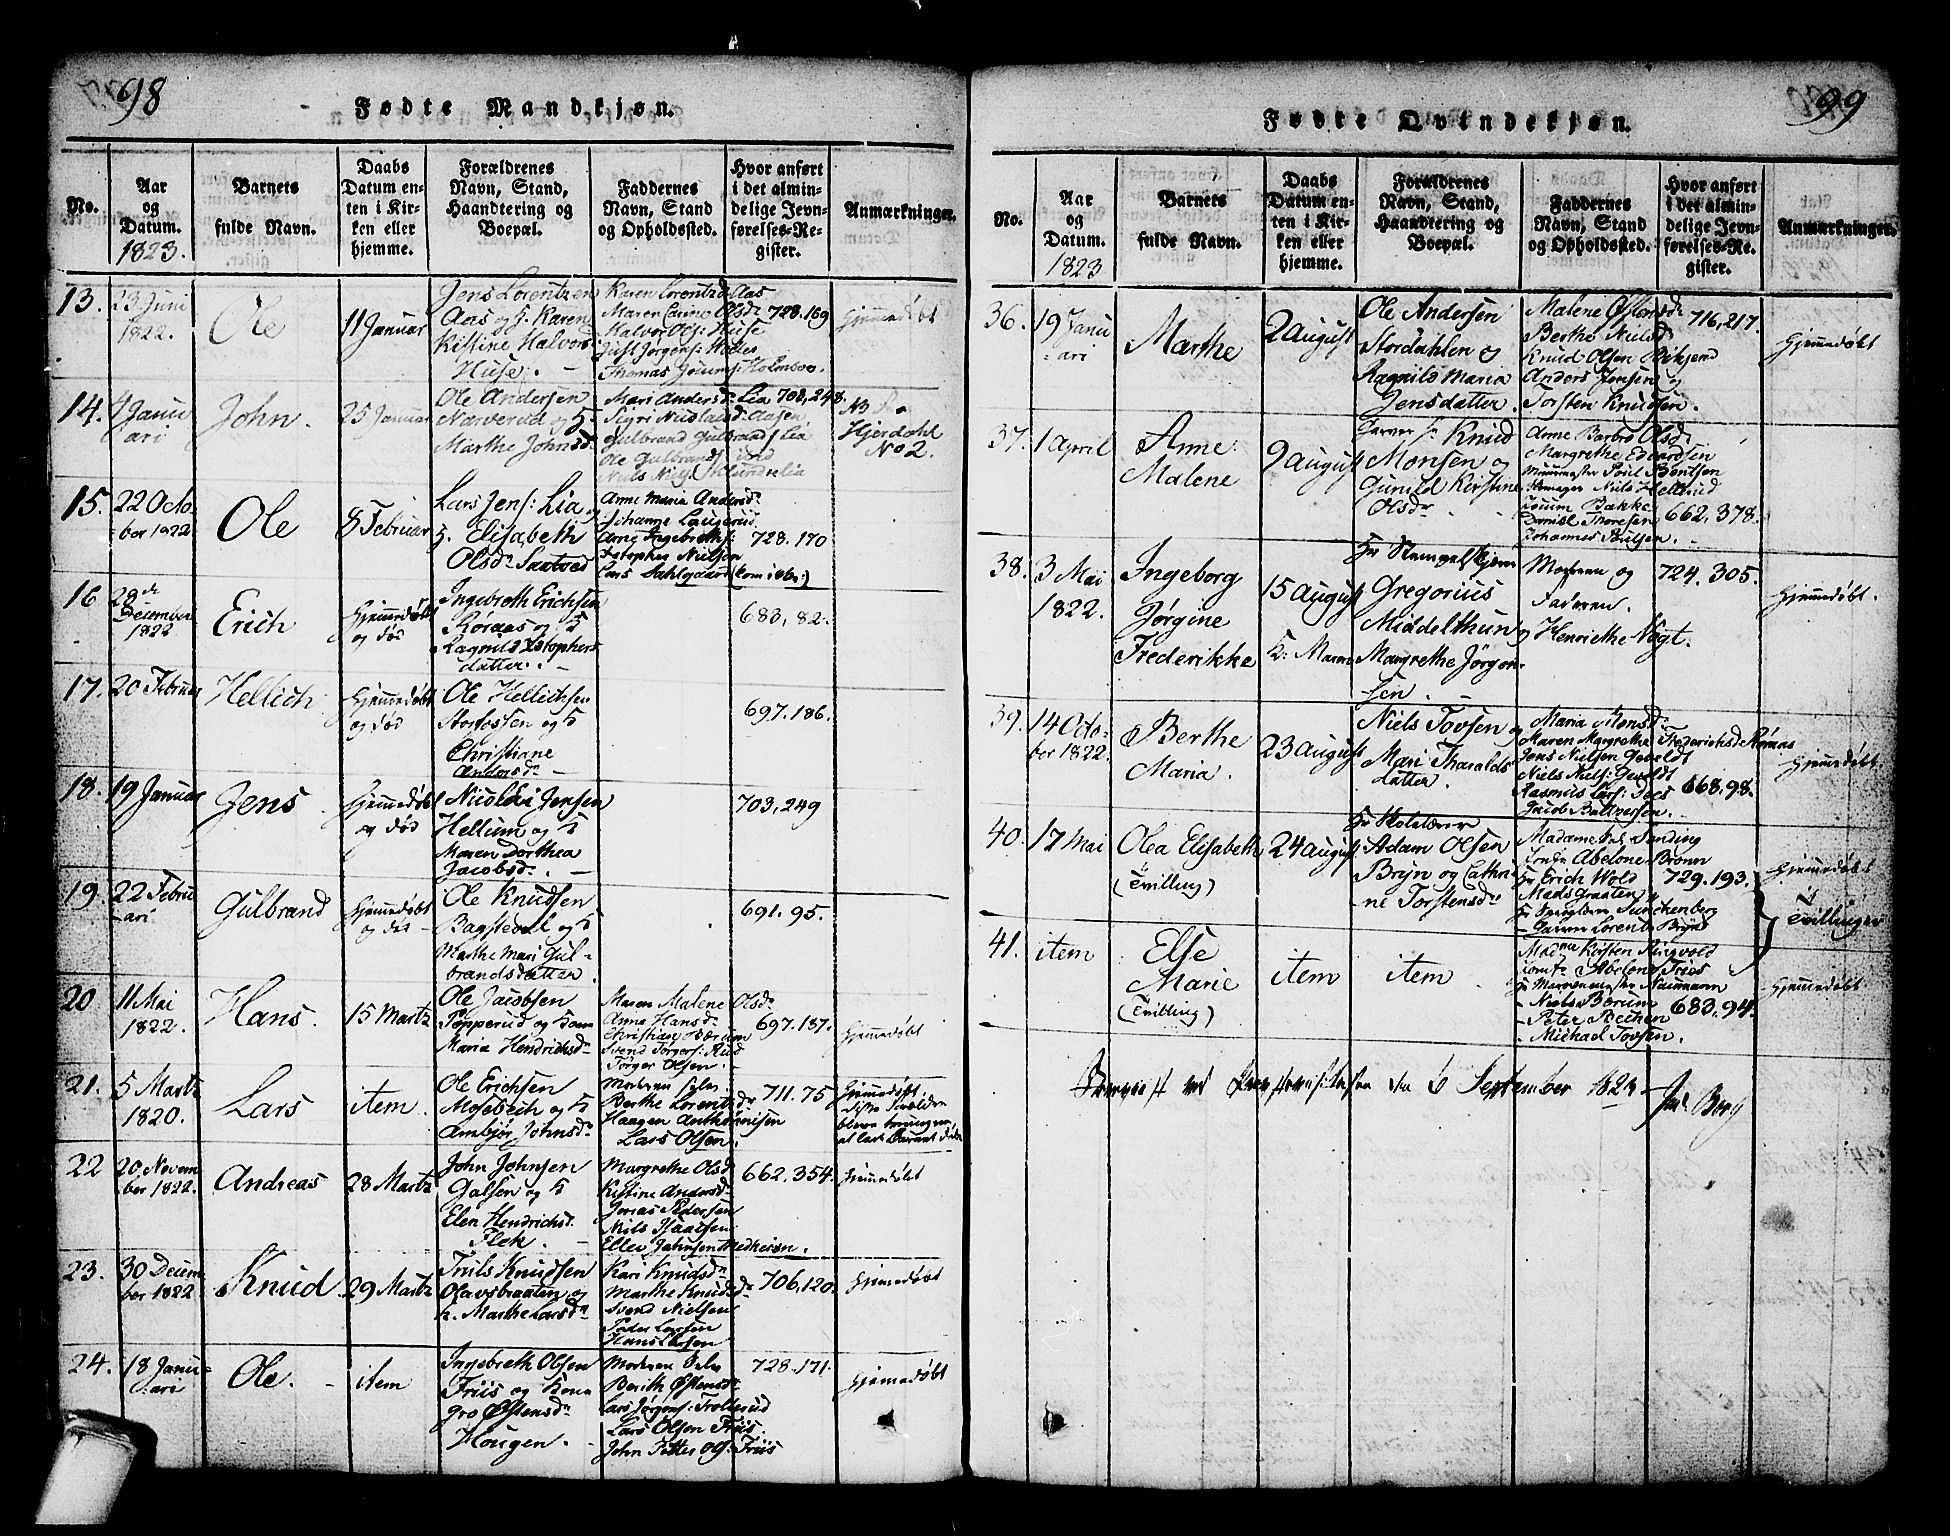 98
Fødte Mandkjøn.
No.
Aar
og
Datum.
1823.
Barnets
fulde Navn.
Daabs
Datum en-
ten i Kir-
ken eller
hjemme.
Forældrenes
Navn, Stand,
Haandtering og
Boepæl.
Faddernes
Navn, Stand
og Opholdssted.
Hvor anført
i det almin-
delige Jevn-
førelses-Re-
gister.
Anmærkninger.
13.
23 Juni
1822.
Ole
11 Januar
Jens Lorentzen
Aas og H. Karen
Kistine Halvors
Huse.
Karen Lorentzd Aas
Maren Carine Olsdr
Halvor Ols: Huse
Just Jørgens:
Thomas Holmboe.
728.169
Hjemmedøbt
14.
4 Janu
ari
John.
25 Januar
Ole Andersen
Narverud og H.
Marthe Johnsd.
Mari Andersd: Lia
Sigri Nicolaisd: Aasen
Gulbrand Gulbrands Lia
Ole Gulbrands
708,248
Hjerdahl
No 2.
15.
22 Octo
ber 1822
Ole
8 Februar
Lars Jens: Lia og
H. Elisabeth
Olsdr Saatved
Anne Maria Andersdr
Johanne Laugerud
Arne Ingebreths:
Xstopher Nielsen
Lars Dahlgaard (kom ikke:)
728.170
16
28de
December
1822
Erich
Hjemmedøbt
og død
Ingebreth Erichsen
Moraas og H
Ragnild Xstophers
datter.
683,82.
17.
20 Februar
Hellich
Hjemmedøbt
og død
Ole Hellichsen
Storfossen og H
Christiane
Andersdr
697.186.
18.
19 Januar
Jens
Hjemmedøbt
og død
Nicolai Jensen
Hellum og H
Maren Dorthea
Jacobsdr.
703,249
19.
22 Febru
-ari
Gulbrand
Hjemmedøbt
og død
Ole Knudsen
Bagstevold og H
Marthe Mari Gul-
brandsdatter.
691.95.
20
11 Mai
1822.
Hans.
15 Martz
Ole Jacobsen
Popperud og Kone
Maria Hendrichsdr
Maren Malene Olsdr
Anne Hansdr
Christian Bærum
Svend Torgers: Rud
Törger Olsen.
697.187.
Hjemmedøbt
21.
5 Martz
1820.
Lars
item.
Ole Erichsen
Mosebech og H
Ambjør Johnsdr
Moderen selv
Berthe Lorentzdr
Haagen Anthonisen
Lars Olsen.
711.75
Hjemmedøbt
22
20 Novem
ber 1822.
Andreas
28 Martz
John Johnsen
Galsen og H
Elen Hendrichsd.
Flek.
Margrethe Olsd
Kistine Andersdr
Jonas Pedersen
Nils Isaacsen
Ellev Jahnsen Medheien.
662.354.
Hjemmedøbt
23.
30 Decem
ber 1822
Knud
29 Martz
Truls Knudsen
Olavsbraaten og
H. Marthe Larsdr
Kari Knudsdr
Marthe Knudsdr
Svend Nielsen
Peder Larsen
Hans Larsen
706,120.
Hjemmedøbt
24.
18 Janu-
ari
Ole.
item
Ingebreth Olsen
Friis og Kone
Gro Østensdr
Hougen.
Moderen selv
Berith Østensdr
Lars Jørgens: Trollerud
Lars Olsen Friis
John Petter Ols: Friis
728.171.
Hjemmedøbt
99
Fødte Qvindekjøn.
No.
Aar
og
Datum.
1823
Barnets
fulde Navn.
Daabs
Datum en-
ten i Kir-
ken eller
hjemme.
Forældrenes
Navn, Stand,
Haandtering og
Boepæl.
Faddernes
Navn, Stand
og Opholdssted.
Hvor anført
i det almin-
delige Jevn-
førelses-Re-
gister.
Anmærkninger.
36.
19 Janu
ari
Marthe
2 August
Ole Andersen
Stordahlen og
Ragnild Maria
Jensdatter.
Malene Østensdr
Berthe Nielsd:
Knud Olsen
Anders Jensen og
Torsten Knudsen.
716,217.
Hjemmedøbt
37.
1 April
Anne
Malene
9 August
Knud
Monsen og
Gunild Kirstine
Olsdr
Anne Barbro Olsdr
Margrethe Edvardsen
Poul Bentsen
Niels Hellerud
Bakke
Daniel Thoresen
Johannes Poulsen.
662.378.
38.
3 Mai
1822.
Ingeborg
Jørgine
Frederikke
15 August
H: Mamre
Gregorius
Middelthun og
Margrethe Jørgen-
sen
Moderen og
Faderen.
Henriethe Vogt.
724.305.
Hjemmedøbt.
39.
14 Octo
ber 1822.
Berthe
Maria.
23 August
Niels Tovsen og
Mari Tharalds
datter.
Maria Monsdr
Maren Margrethe Frederichsd
Jens Nielsen Geveldt
Niels Niels: Geveldt
Rasmus Lars: Dees
Jacob Baltzersen.
668,98.
Hjemmedøbt.
40.
17 Mai
Olea Elisabeth
(Tvilling)
24 August
Hr Skolelærer
Adam Olsen
Bryn og Cathri-
ne Torstensdr
Madame Sanding
Abelone Brønn
Hr Erich Wold
Mads Graaten
Sunckenberg
Lorentz Bryn
729.193.
Hjemmedøbt
Tvillinger
41.
item
Else
Marie
(Tvilling)
item
item
Kirsten Ringvold
Abelone Friis
Niels Borum
Peter Stechen
Michael Tovsen.
683.94.
Hjemmedøbt
6 September 1823.